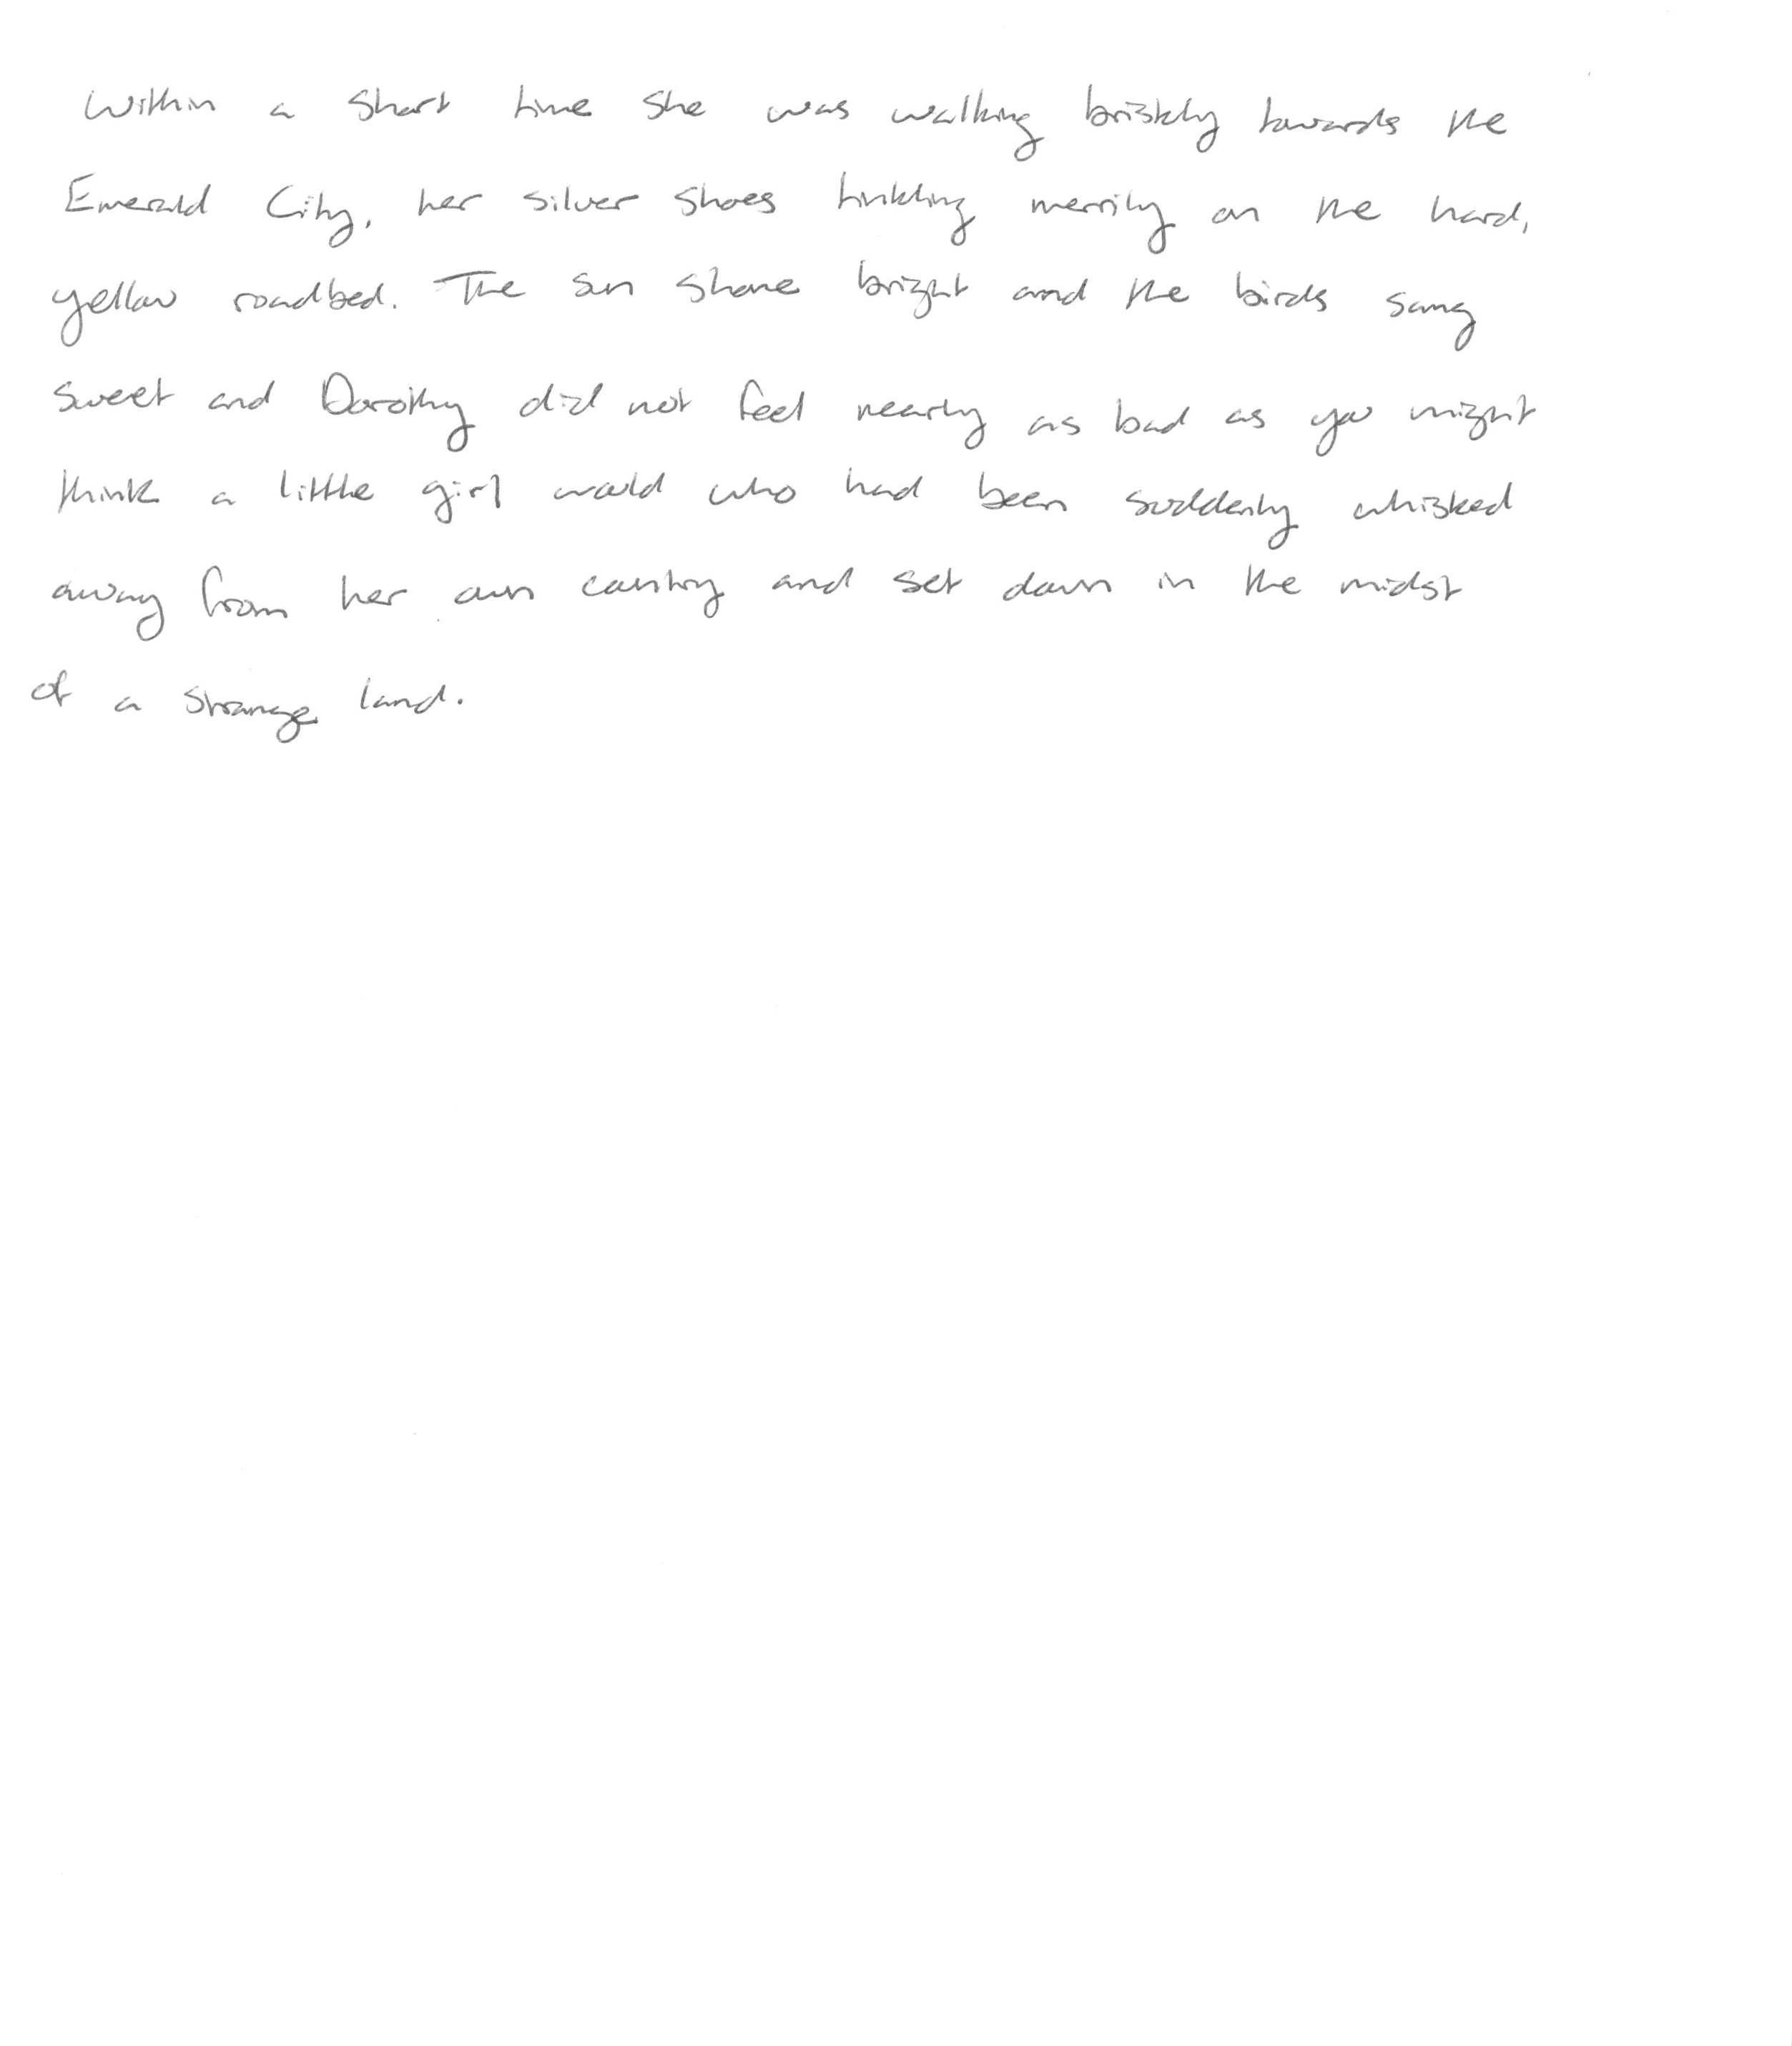 Within a short time she was walking briskly towards the
Emerald City, her silver shoes tinkling merrily on the hard,
yellow roadbed. The sun shone bright and the birds sang
sweet and Dorothy did not feel nearly as bad as you might
think a little girl would who had been suddenly whisked
away from her own country and set down in the midst
of a strange land.